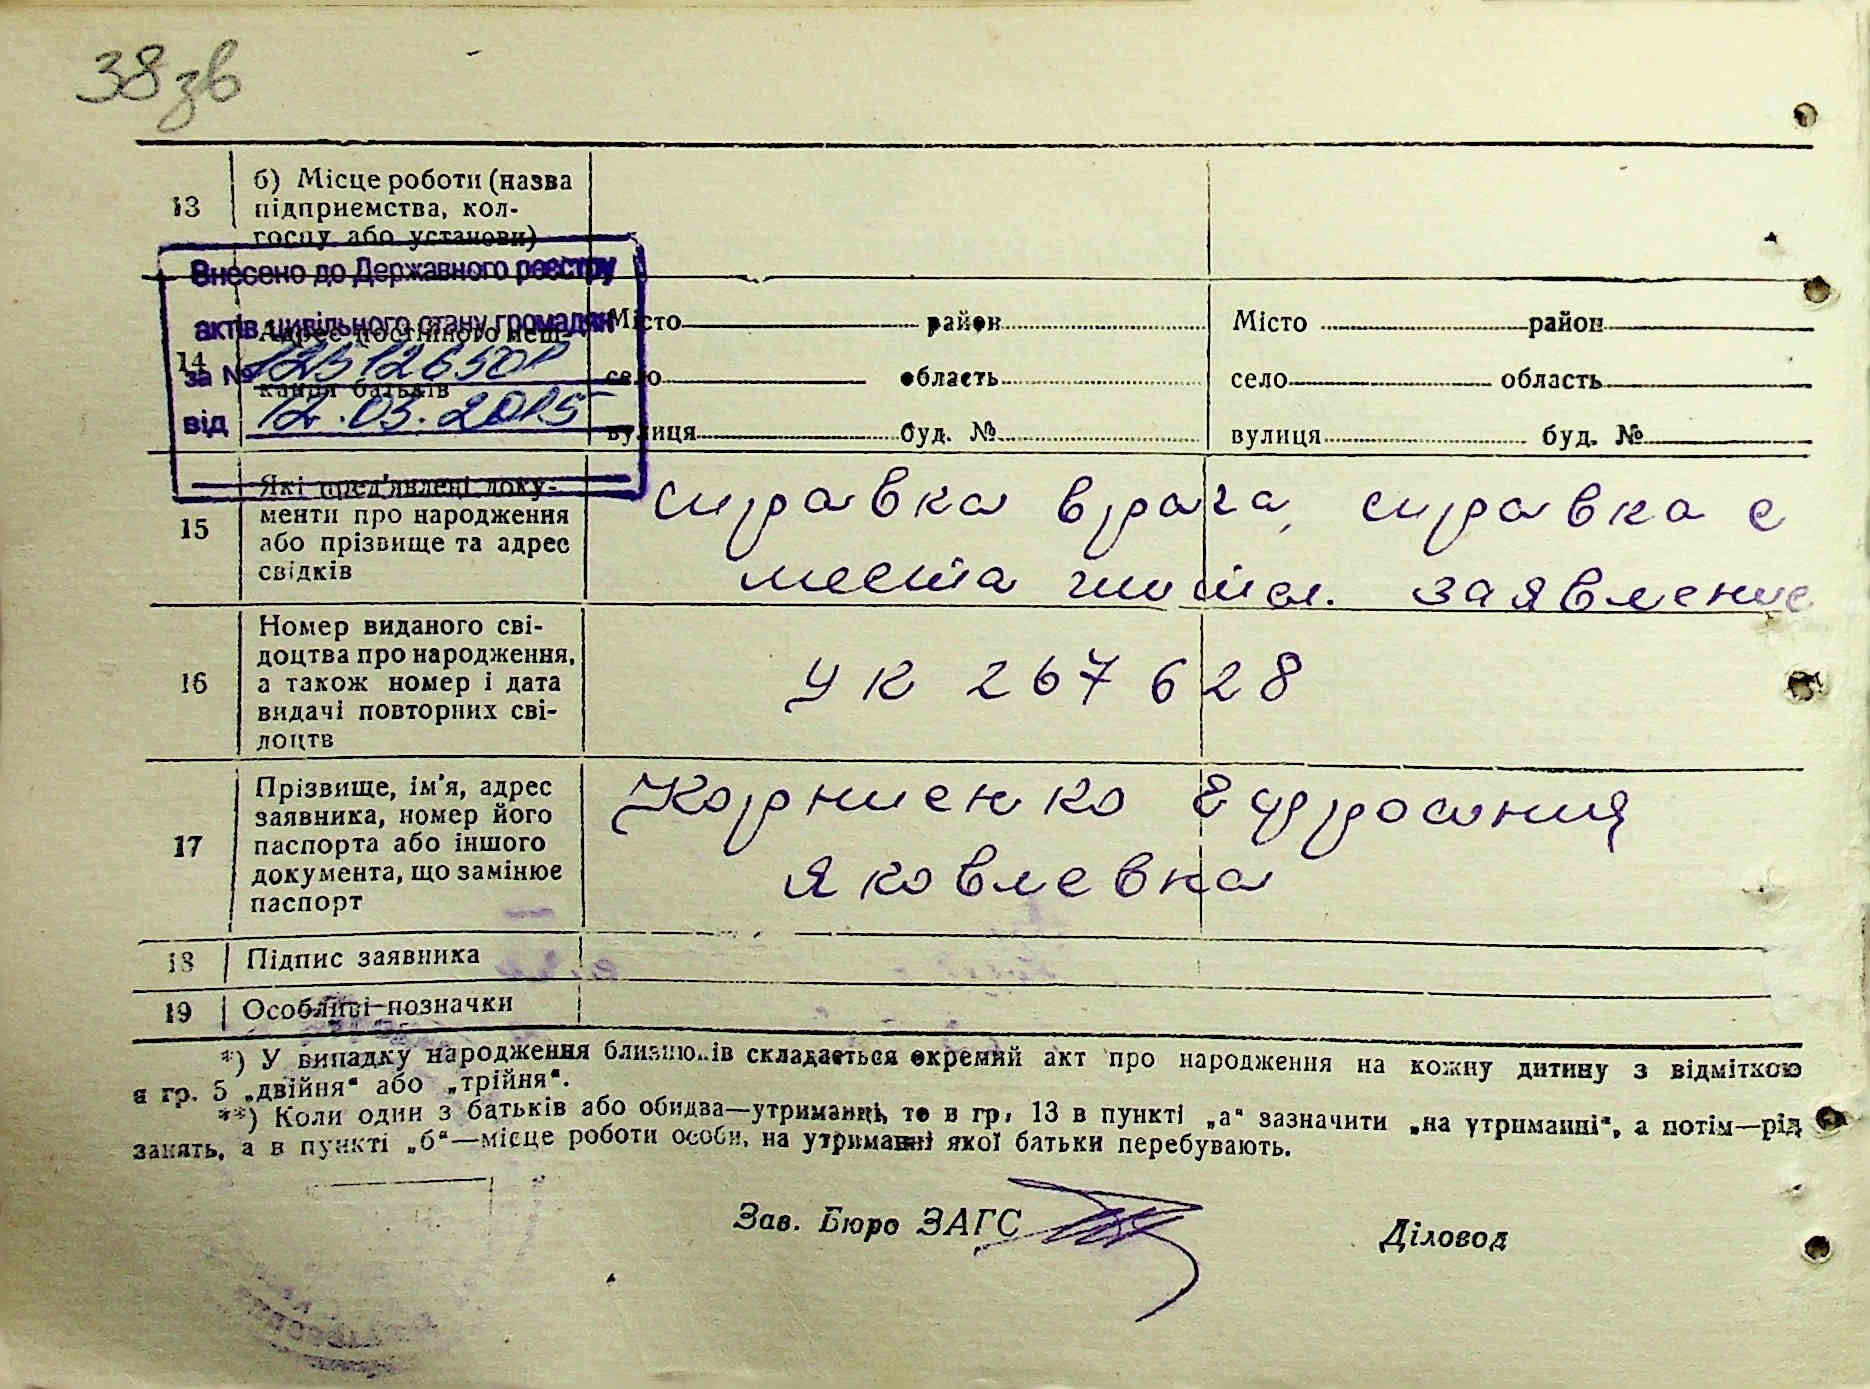 38 зв
13
б) Місце роботи (назва
підприємства, кол-
госпу або установи)
Внесено до Державного реєстру
актів цивільного стану громадян
за №
від 12.03.2015
14
Адрес постійного меш-
кання батьків
Місто район
село область
вулиця буд. №
Місто район
село область
вулиця буд. №
15
Які пред'явлені доку-
менти про народження
або прізвище та адрес
свідків
справка врача, справка с
места жител. заявление
16
Номер виданого сві-
доцтва про народження,
а також номер і дата
видачі повторних сві-
доцтв
УК 267628
17
Прізвище, ім'я, адрес
заявника, номер його
паспорта або іншого
документа, що замінює
паспорт
Корниенко Ефросиния
Яковлевна
18
Підпис заявника
19
Особливі позначки
*) У випадку народження близнюків складається окремий акт про народження на кожну дитину з відміткою
в гр. 5 „двійня“ або „трійня“.
**) Коли один з батьків або обидва—утриманці, то в гр. 13 в пункті „а“ зазначити „на утриманні“, а потім—рід
занять, а в пункті „б“—місце роботи особи, на утриманні якої батьки перебувають.
Зав. Бюро ЗАГС
Діловод